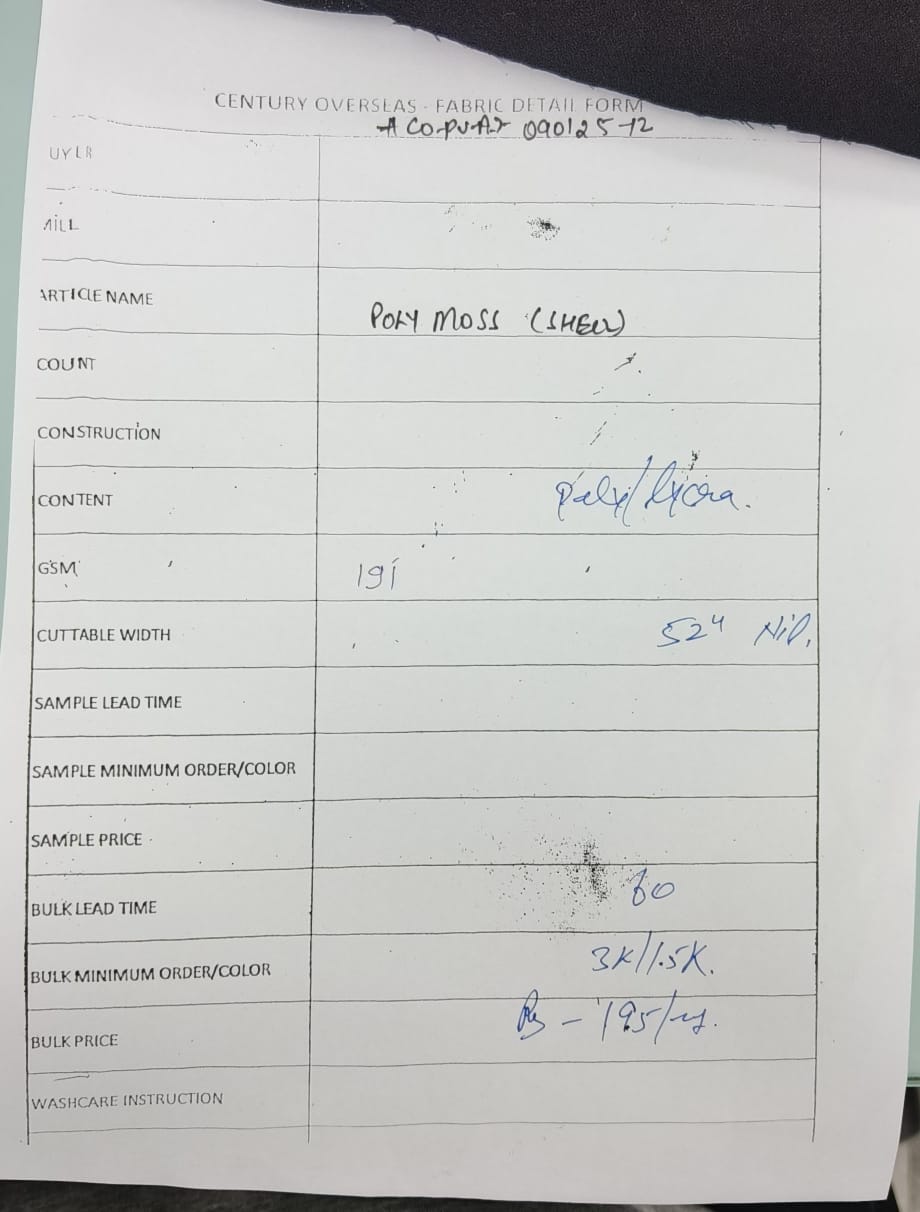 CENTURY OVERSEAS - FABRIC DETAIL FORM
090125-12
UYER
MILL
ARTICLE NAME POLY MOSS (SHELL)
COUNT
CONSTRUCTION
CONTENT Poly/lycra.
GSM 191
CUTTABLE WIDTH 52"
SAMPLE LEAD TIME
SAMPLE MINIMUM ORDER/COLOR
SAMPLE PRICE
BULK LEAD TIME 60
BULK MINIMUM ORDER/COLOR 3K/1.5K.
BULK PRICE Rs - 195/
WASHCARE INSTRUCTION